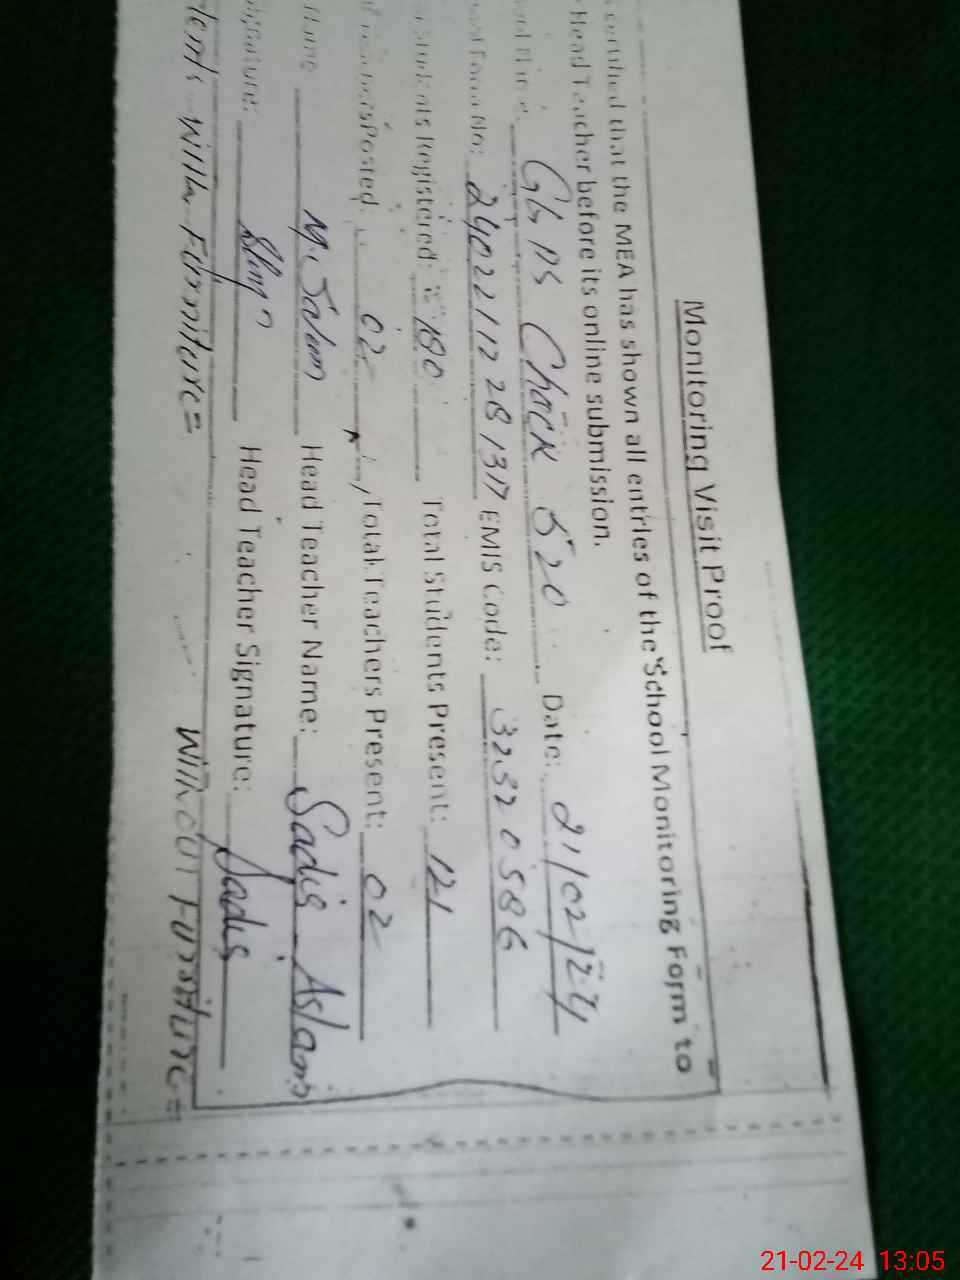 Monitoring Visit Proof
certified that the MEA has shown all entries of the School Monitoring Form to
Head Teacher before its online submission.
GGPS Chack 520 Date: 21/02/24
No: 24022112281317 EMIS Code: 32320586
Students Registered: 180 Total Students Present: 121
Teachers Posted: 02, Total Teachers Present: 02
Name M. Salem Head Teacher Name: Sadis Aslam
Signature: Head Teacher Signature: Sadis
With Furniture= Without Furniture=
21-02-24 13:05